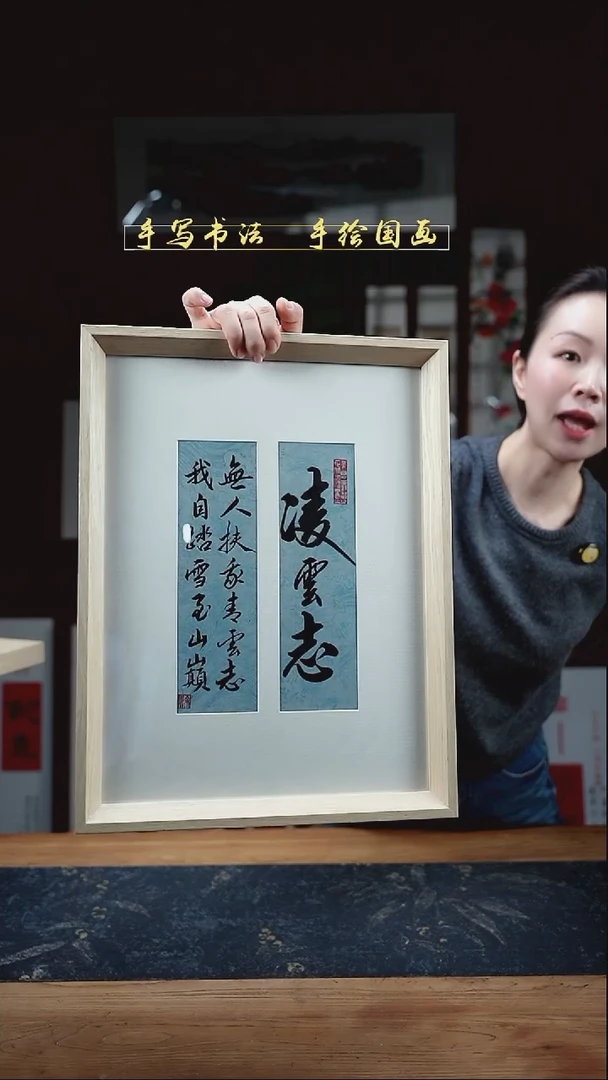 手写书法 手绘国画
凌雲志
無人扶我青雲志
我自踏雪至山巔